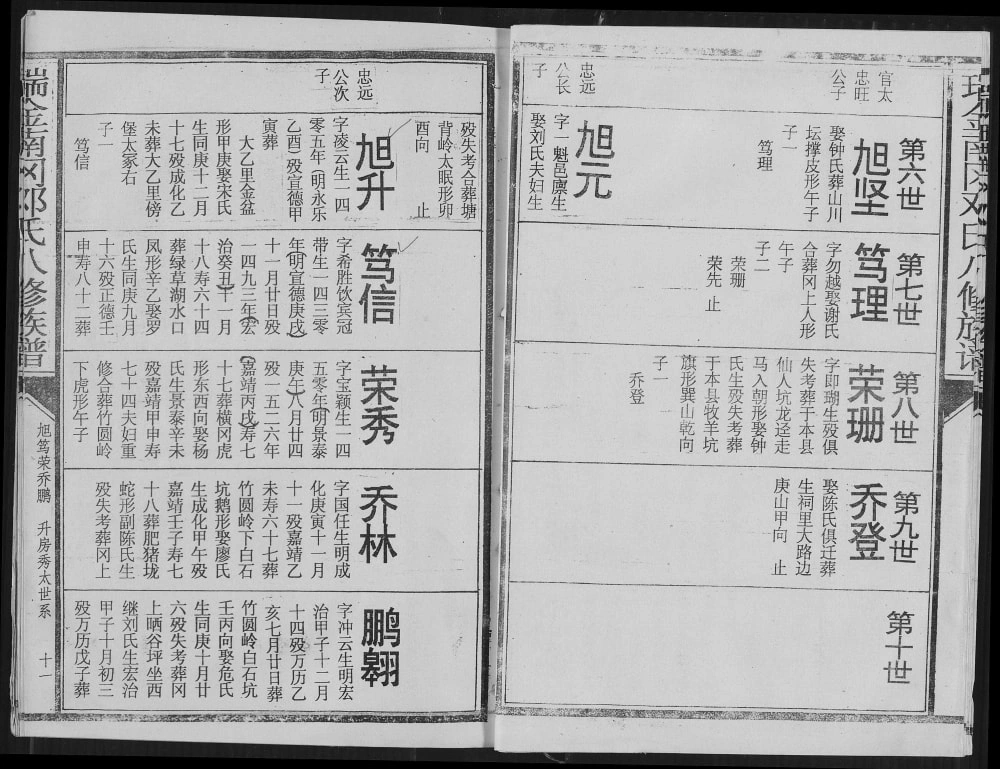 瑞金南冈邓氏八修族谱
第六世
官太
忠旺
公子
旭坚
娶钟氏葬山川
坛撑皮形午子
子一
笃理
忠远
公长
子
旭元
字一魁邑廪生
娶刘氏夫妇生
第七世
笃理
字勿越娶谢氏
合葬冈上人形
午子
子二
荣珊
荣先 止
第八世
荣珊
字即瑚生殁俱
失考葬于本县
仙人坑龙迳走
马入朝形娶钟
氏生殁失考葬
于本县牧羊坑
旗形巽山乾向
子一
乔登
第九世
乔登
娶陈氏俱迁葬
生祠里大路边
庚山甲向 止
第十世
殁失考合葬塘
背岭太眠形卯
酉向 止
忠远
公次
子
旭升
字凌云生一四
零五年(明永乐
乙酉)殁宣德甲
寅葬
大乙里金盆
形甲庚娶宋氏
生同庚十二月
十七殁成化乙
未葬大乙里傍
堡太冢右
子一
笃信
笃信
字希胜饮宾冠
带生一四三零
年(明宣德庚戌)
十一月廿日殁
一四九三年(宏
治癸丑)十一月
十八寿六十四
葬绿草湖水口
凤形辛乙娶罗
氏生同庚九月
十六殁正德壬
申寿八十二葬
荣秀
字宝颖生一四
五零年(明景泰
庚午)八月廿四
殁一五二六年
(嘉靖丙戌)寿七
十七葬横冈虎
形东西向娶杨
氏生景泰辛未
殁嘉靖甲申寿
七十四夫妇重
修合葬竹圆岭
下虎形午子
乔林
字国任生明成
化庚寅十一月
十一殁嘉靖乙
未寿六十七葬
竹圆岭下白石
坑鹅形娶廖氏
生成化甲午殁
嘉靖壬子寿七
十八葬肥猪垅
蛇形副陈氏生
殁失考葬冈上
鹏翱
字冲云生明宏
治甲子十二月
十四殁万历乙
亥七月廿日葬
竹圆岭白石坑
壬丙向娶危氏
生同庚十月廿
六殁失考葬冈
上晒谷坪坐西
继刘氏生宏治
甲子十月初三
殁万历戊子葬
瑞金南冈邓氏八修族谱
旭笃荣乔鹏 升房秀太世系 十一